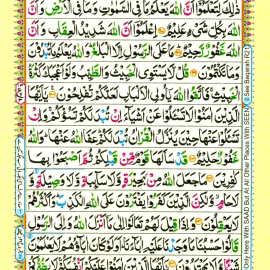 ذٰلِكَ لِتَعْلَمُوْٓا اَنَّ اللّٰهَ يَعْلَمُ مَا فِى السَّمٰوٰتِ وَمَا فِى الْاَرْضِ وَاَنَّ
اللّٰهَ بِكُلِّ شَىْءٍ عَلِيْمٌ اِعْلَمُوْٓا اَنَّ اللّٰهَ شَدِيْدُ الْعِقَابِ وَاَنَّ
اللّٰهَ غَفُوْرٌ رَّحِيْمٌ مَا عَلَى الرَّسُوْلِ اِلَّا الْبَلٰغُ وَاللّٰهُ يَعْلَمُ مَا تُبْدُوْنَ
وَمَا تَكْتُمُوْنَ قُلْ لَّا يَسْتَوِى الْخَبِيْثُ وَالطَّيِّبُ وَلَوْ اَعْجَبَكَ كَثْرَةُ
الْخَبِيْثِ فَاتَّقُوا اللّٰهَ يٰٓاُولِى الْاَلْبَابِ لَعَلَّكُمْ تُفْلِحُوْنَ يٰٓاَيُّهَا
الَّذِيْنَ اٰمَنُوْا لَا تَسْئَلُوْا عَنْ اَشْيَآءَ اِنْ تُبْدَ لَكُمْ تَسُؤْكُمْ وَاِنْ
تَسْئَلُوْا عَنْهَا حِيْنَ يُنَزَّلُ الْقُرْاٰنُ تُبْدَ لَكُمْ عَفَا اللّٰهُ عَنْهَا وَاللّٰهُ
غَفُوْرٌ حَلِيْمٌ قَدْ سَاَلَهَا قَوْمٌ مِّنْ قَبْلِكُمْ ثُمَّ اَصْبَحُوْا بِهَا
كٰفِرِيْنَ مَا جَعَلَ اللّٰهُ مِنْۢ بَحِيْرَةٍ وَّلَا سَآئِبَةٍ وَّلَا وَصِيْلَةٍ وَّ
لَا حَامٍ وَّلٰكِنَّ الَّذِيْنَ كَفَرُوْا يَفْتَرُوْنَ عَلَى اللّٰهِ الْكَذِبَ وَاَكْثَرُهُمْ
لَا يَعْقِلُوْنَ وَاِذَا قِيْلَ لَهُمْ تَعَالَوْا اِلٰى مَآ اَنْزَلَ اللّٰهُ وَاِلَى الرَّسُوْلِ
قَالُوْا حَسْبُنَا مَا وَجَدْنَا عَلَيْهِ اٰبَآءَنَا اَوَلَوْ كَانَ اٰبَآؤُهُمْ لَا يَعْلَمُوْنَ
Only Here With SAAD But At All Other Places With SEEN
See Baqarah R21